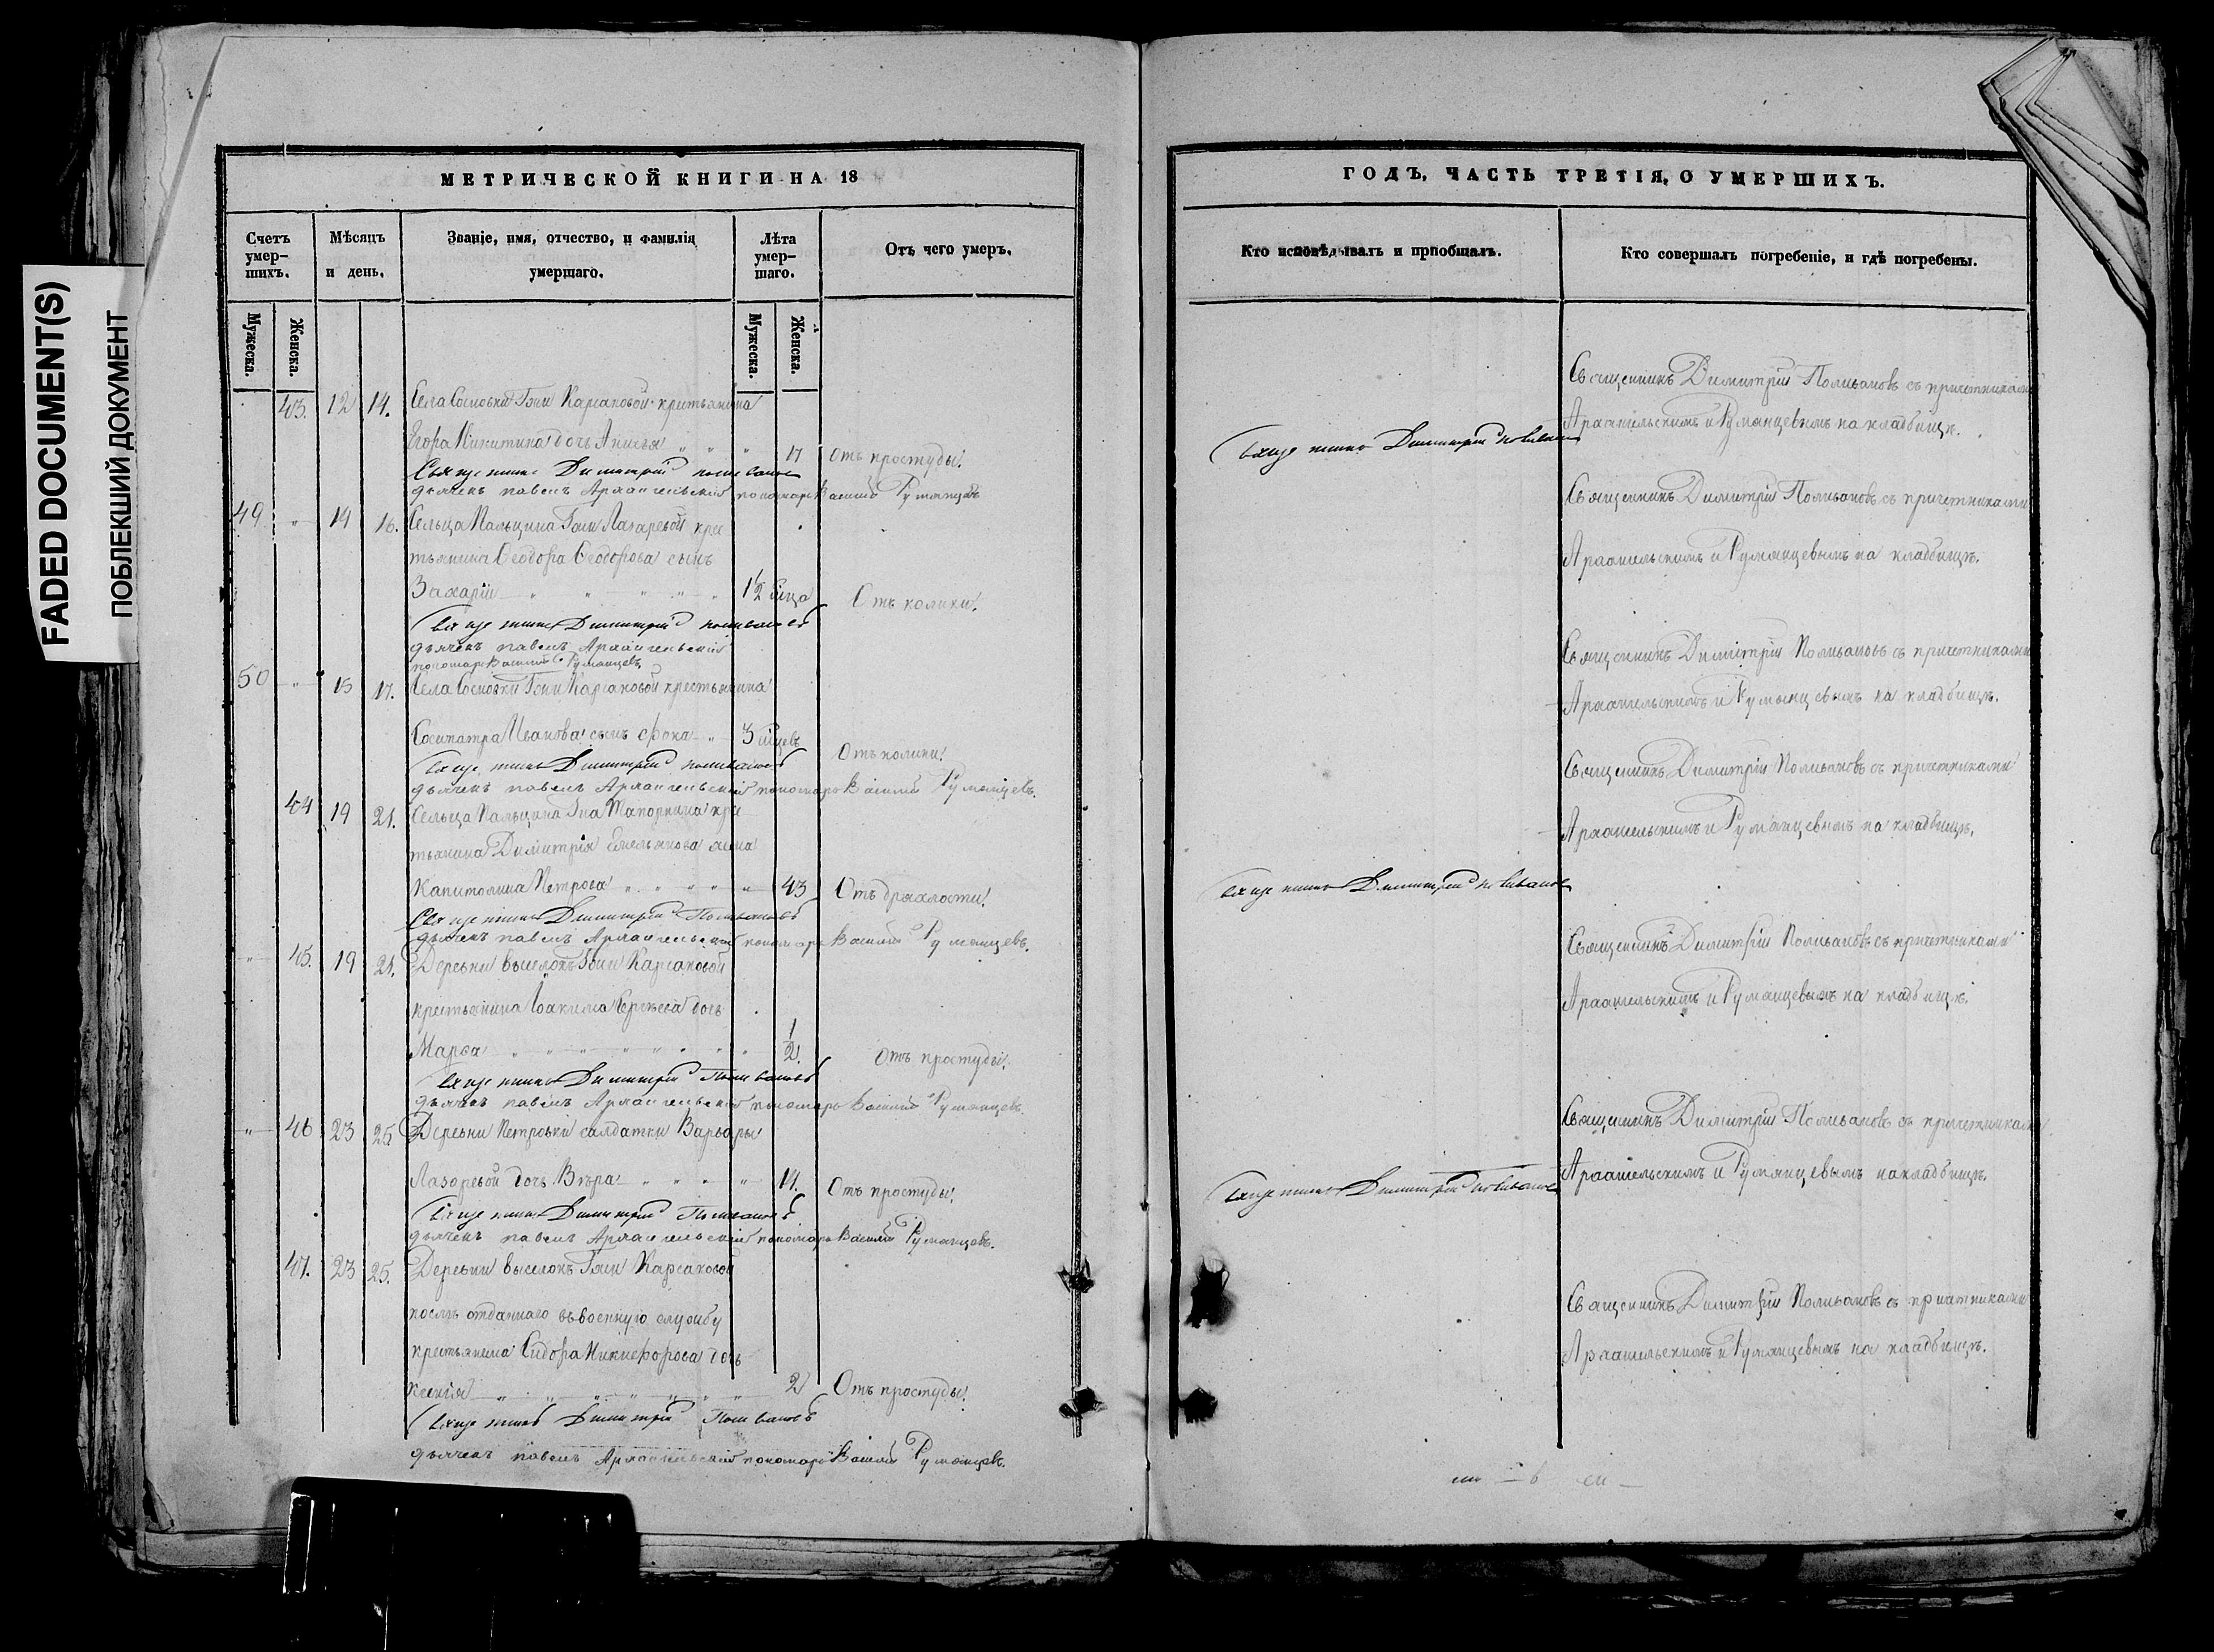 FADED DOCUMENT(S)
ПОБЛЕКШИЙ ДОКУМЕНТ
МЕТРИЧЕСКОЙ КНИГИ НА 18
Счетъ умер-
шихъ.
Мѣсяцъ
и день.
Званіе, имя, отчество, и фамилія
умершаго.
Лѣта
умер-
шаго.
Отъ чего умеръ.
Мужеска.
Женска.
Мужеска.
Женска.
43. 12 14. Села Сосновки Гжи Карсаковой крестьянина
Егора Никитина дочь Анисья 17 Отъ простуды.
Священникъ Димитрій Поливановъ
дьячекъ павелъ Архангельскій пономарь Василій Румянцевъ
49 14 16. Сельца Пальцина Гжи Лазаревой крес
тьянина Ѳеодора Ѳеодорова сынъ
Захарій 1½ Отъ колики.
Священникъ Димитрій поливановъ
дьячекъ павелъ Архангельскій
пономарь Василій Румянцевъ
50 15 17. Села Сосновки Гжи Карсаковой крестьянина
Сосипатра Иванова сынъ 3 Отъ колики.
Священникъ Димитрій поливановъ
дьячекъ павелъ Архангельскій пономарь Василій Румянцевъ.
44 19 21. Сельца Пальцина Гна Топорнина кре
тьянина Димитрія Емельянова жена
Капитолина Петрова 43 Отъ дряхлости.
Священникъ Димитрій Поливановъ
дьячекъ павелъ Архангельскій пономарь Василій Румянцевъ.
45. 19 21. Деревни выселокъ Гжи Карсаковой
крестьянина Іоакима дочь
Марѳа 1/2. Отъ простуды.
Священникъ Димитрій Поливановъ
дьячекъ павелъ Архангельскій пономарь Василій Румянцевъ.
46 23 25 Деревни Петровки салдатки Варвары
Лазаревой дочь Вѣра 14. Отъ простуды.
Священникъ Димитрій Поливановъ
дьячекъ павелъ Архангельскій пономарь Василій Румянцевъ.
47. 23 25. Деревни выселокъ Гжи Карсаковой
послѣ отданнаго въ военную службу
крестьянина Сидора Никифорова дочь
Ксенія 2 Отъ простуды.
Священникъ Димитрій Поливановъ
дьячекъ павелъ Архангельскій пономарь Василій Румянцевъ.
ГОДЪ, ЧАСТЬ ТРЕТІЯ, О УМЕРШИХЪ.
Кто исповѣдывалъ и пріобщалъ.
Кто совершалъ погребеніе, и гдѣ погребены.
Священникъ Димитрій Поливановъ съ причетниками
Архангельскимъ и Румянцевымъ на кладбищѣ.
Священникъ Димитрій поливановъ
Священникъ Димитрій Поливановъ съ причетниками
Архангельскимъ и Румянцевымъ на кладбищѣ.
Священникъ Димитрій Поливановъ съ причетниками
Архангельскимъ и Румянцевымъ на кладбищѣ.
Священникъ Димитрій Поливановъ съ причетниками
Архангельскимъ и Румянцевымъ на кладбищѣ.
Священникъ Димитрій поливановъ
Священникъ Димитрій Поливановъ съ причетниками
Архангельскимъ и Румянцевымъ на кладбищѣ.
Священникъ Димитрій Поливановъ съ причетниками
Архангельскимъ и Румянцевымъ на кладбищѣ.
Священникъ Димитрій поливановъ
Священникъ Димитрій Поливановъ съ причетниками
Архангельскимъ и Румянцевымъ на кладбищѣ.